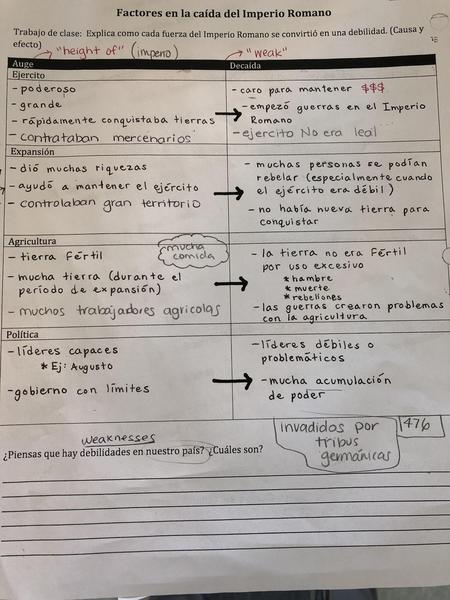 Factores en la caída del Imperio Romano
Trabajo de clase: Explica como cada fuerza del Imperio Romano se convirtió en una debilidad. (Causa y
efecto)
"height of" (imperio)
"weak"
Auge
Decaída
Ejercito
- poderoso
- grande
- rápidamente conquistaba tierras
- contrataban mercenarios
- caro para mantener $$$
- empezó guerras en el Imperio
Romano
- ejercito No era leal
Expansión
- dió muchas riquezas
- ayudó a mantener el ejército
- controlaban gran territorio
- muchas personas se podían
rebelar (especialmente cuando
el ejército era débil)
- no había nueva tierra para
conquistar
Agricultura
mucha
comida
- tierra fértil
- mucha tierra (durante el
período de expansión)
- muchos trabajadores agricolas
- la tierra no era fértil
por uso excesivo
* hambre
* muerte
* rebeliones
- las guerras crearon problemas
con la agricultura
Política
- líderes capaces
* Ej: Augusto
- gobierno con límites
- líderes débiles o
problemáticos
- mucha acumulación
de poder
weaknesses
¿Piensas que hay debilidades en nuestro país? ¿Cuáles son?
invadidos por
tribus
germánicas
476